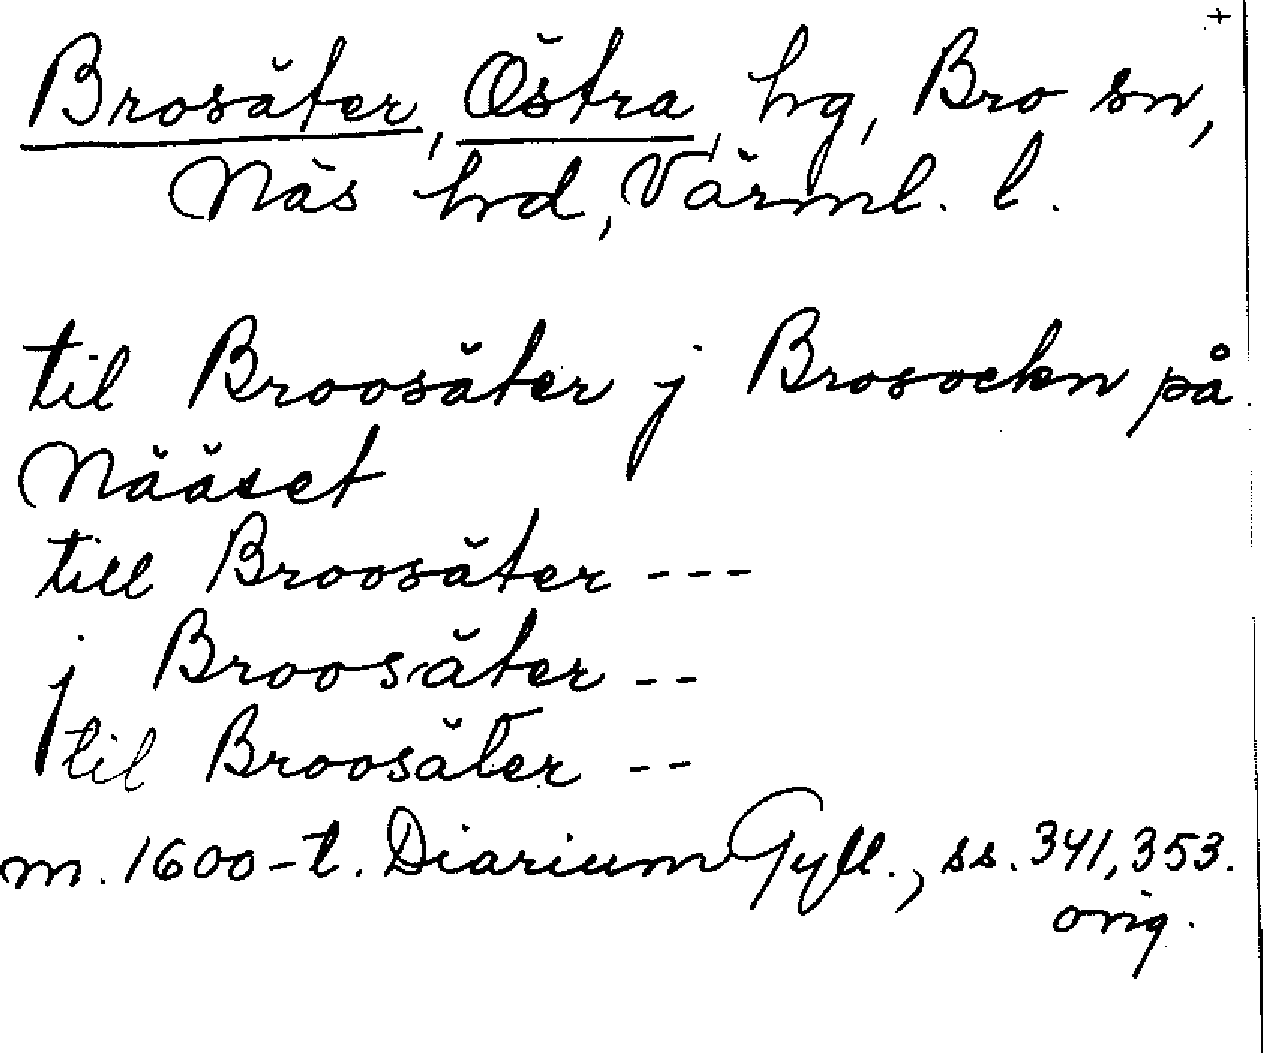 +
Brosäter, Östra, hg, Bro sn,
Näs hd, Värml. l.
til Broosäter j Brosockn på
Nääset
till Broosäter ---
j Broosäter --
til Broosäter --
m. 1600-t. Diarium Gyll., ss. 341, 353.
orig.